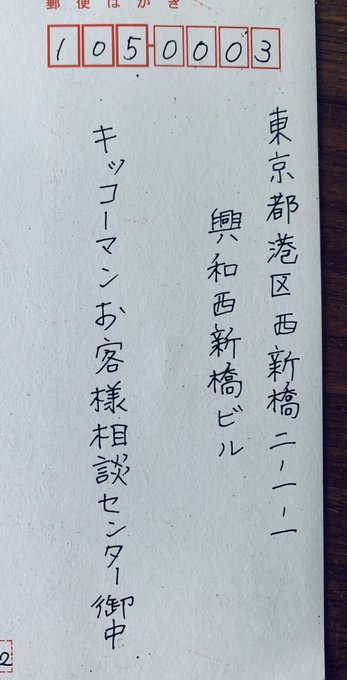 郵便はがき
105-0003
東京都港区西新橋二-一-一
興和西新橋ビル
キッコーマンお客様相談センター御中
2